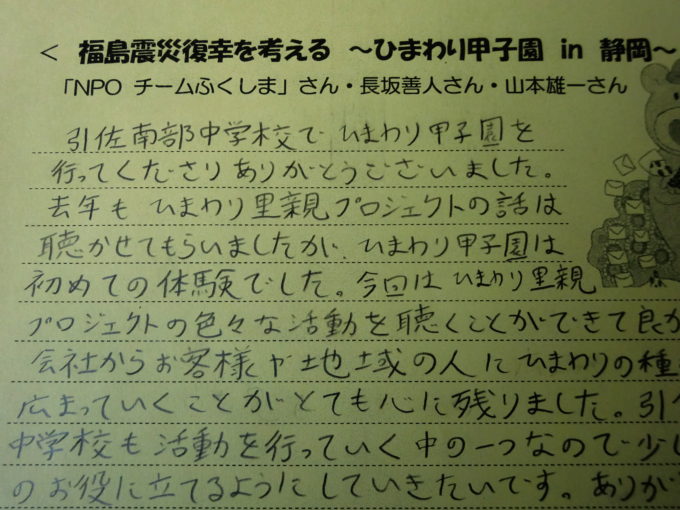 < 福島震災復幸を考える ～ひまわり甲子園 in 静岡～
「NPO チームふくしま」さん・長坂善人さん・山本雄一さん
引佐南部中学校で ひまわり甲子園を
行ってくださりありがとうございました。
去年も ひまわり里親プロジェクトの話は
聴かせてもらいましたが、ひまわり甲子園は
初めての体験でした。今回は ひまわり里親
プロジェクトの色々な活動を聴くことができて良か
会社からお客様や地域の人にひまわりの種
広まっていくことがとても心に残りました。引
中学校も活動を行っていく中の一つなので少し
のお役に立てるようにしていきたいです。ありが